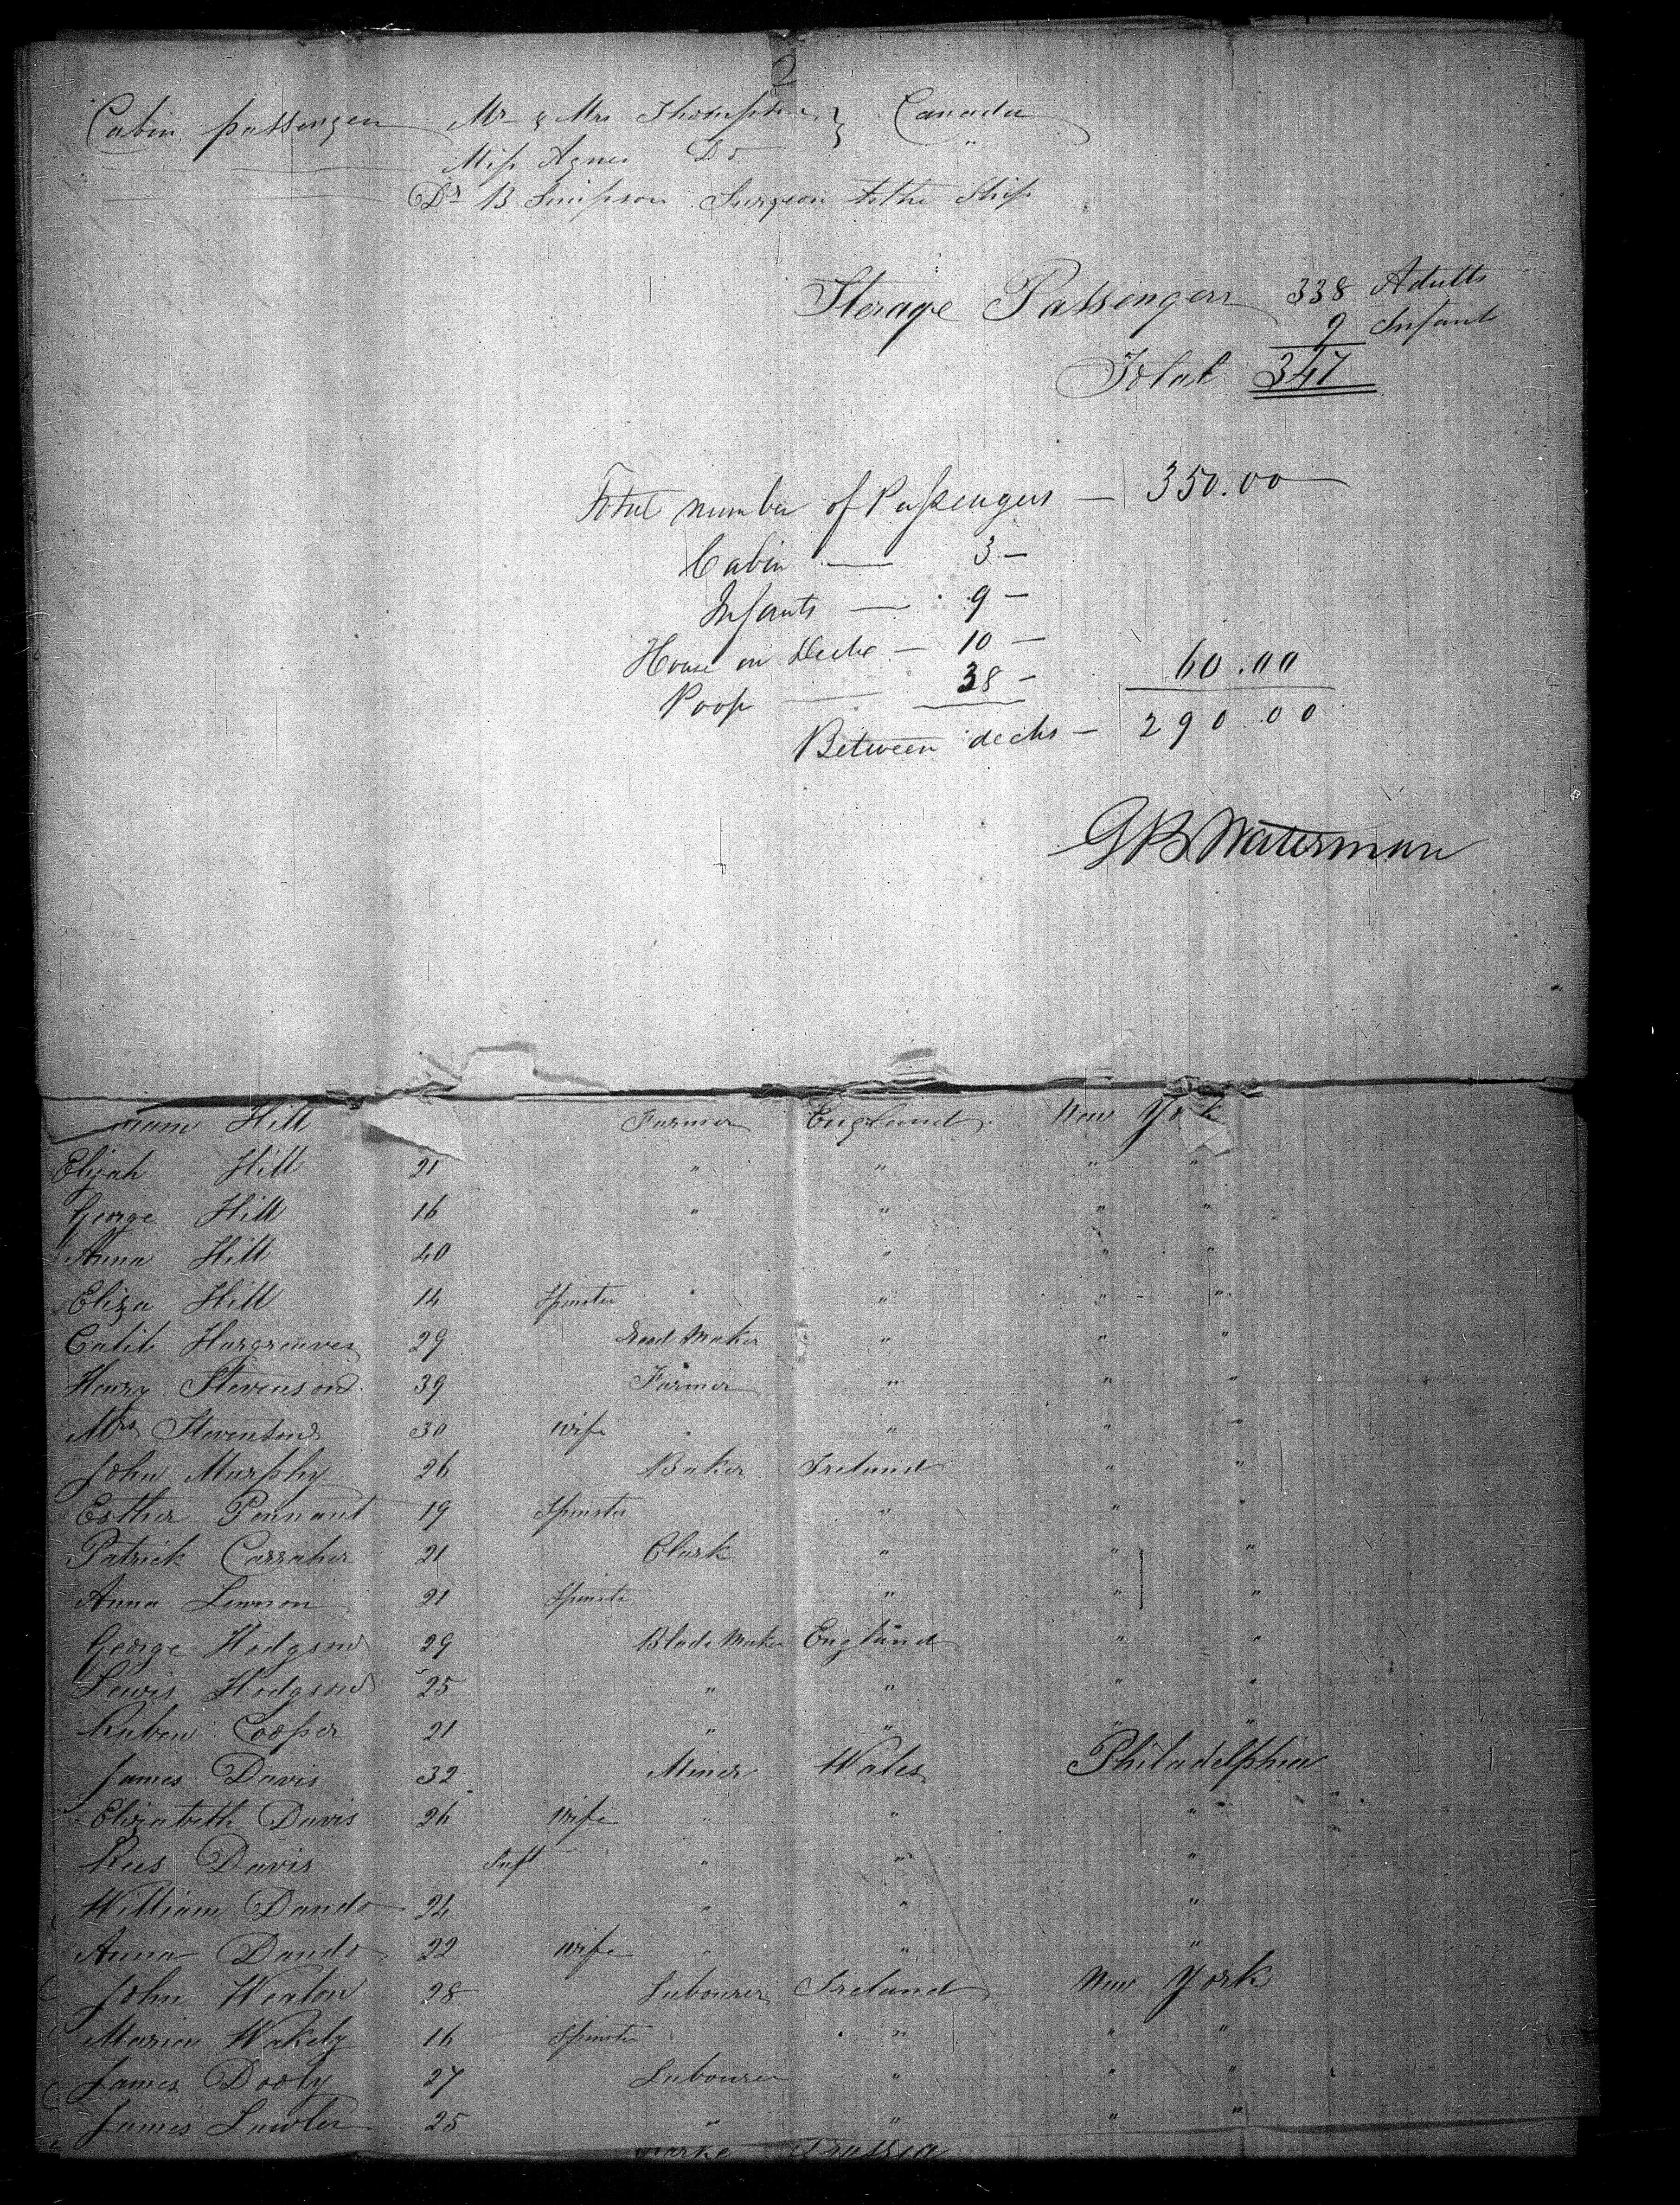 2
Cabin passengers Mr & Mrs Thompson } Canada
Miss Agnes Do "
Dr B Simpson Surgeon to the Ship
Sterage Passengers 338 Adults
9 Infants
Total 347
Total number of Passengers — 350.00
Cabin — 3 —
Infants — 9 —
House on Decke — 10 —
Poop — 38 — 60.00
Between decks — 290.00
G B Waterman
Hill Farmer England New York
Elijah Hill 21 " " " "
George Hill 16 " " " "
Anna Hill 40 " " "
Eliza Hill 14 Spinster " " " "
Calib Hargreaves 29 Maker " " "
Henry Stevenson 39 Farmer " " "
Mrs Stevenson 30 wife " " " "
John Murphy 26 Baker Ireland " "
Esther Pennant 19 Spinster " " "
Patrick Carraher 21 Clark " " "
Anna Lennon 21 Spinster " " "
George Hodgson 29 Blade Maker England " "
Lewis Hodgson 25 " " " "
Ruben Cooper 21 " " " "
James Davis 32 Miner Wales Philadelphia
Elizabeth Davis 26 wife " " "
Rees Davis Inft " " "
William Dando 24 " " "
Anna Dando 22 wife " " "
John Weaton 28 Labourer Ireland New York
Maria Wakely 16 Spinster " " "
James Dooly 27 Labourer " " "
James Lawler 25 " " " "
Prussia